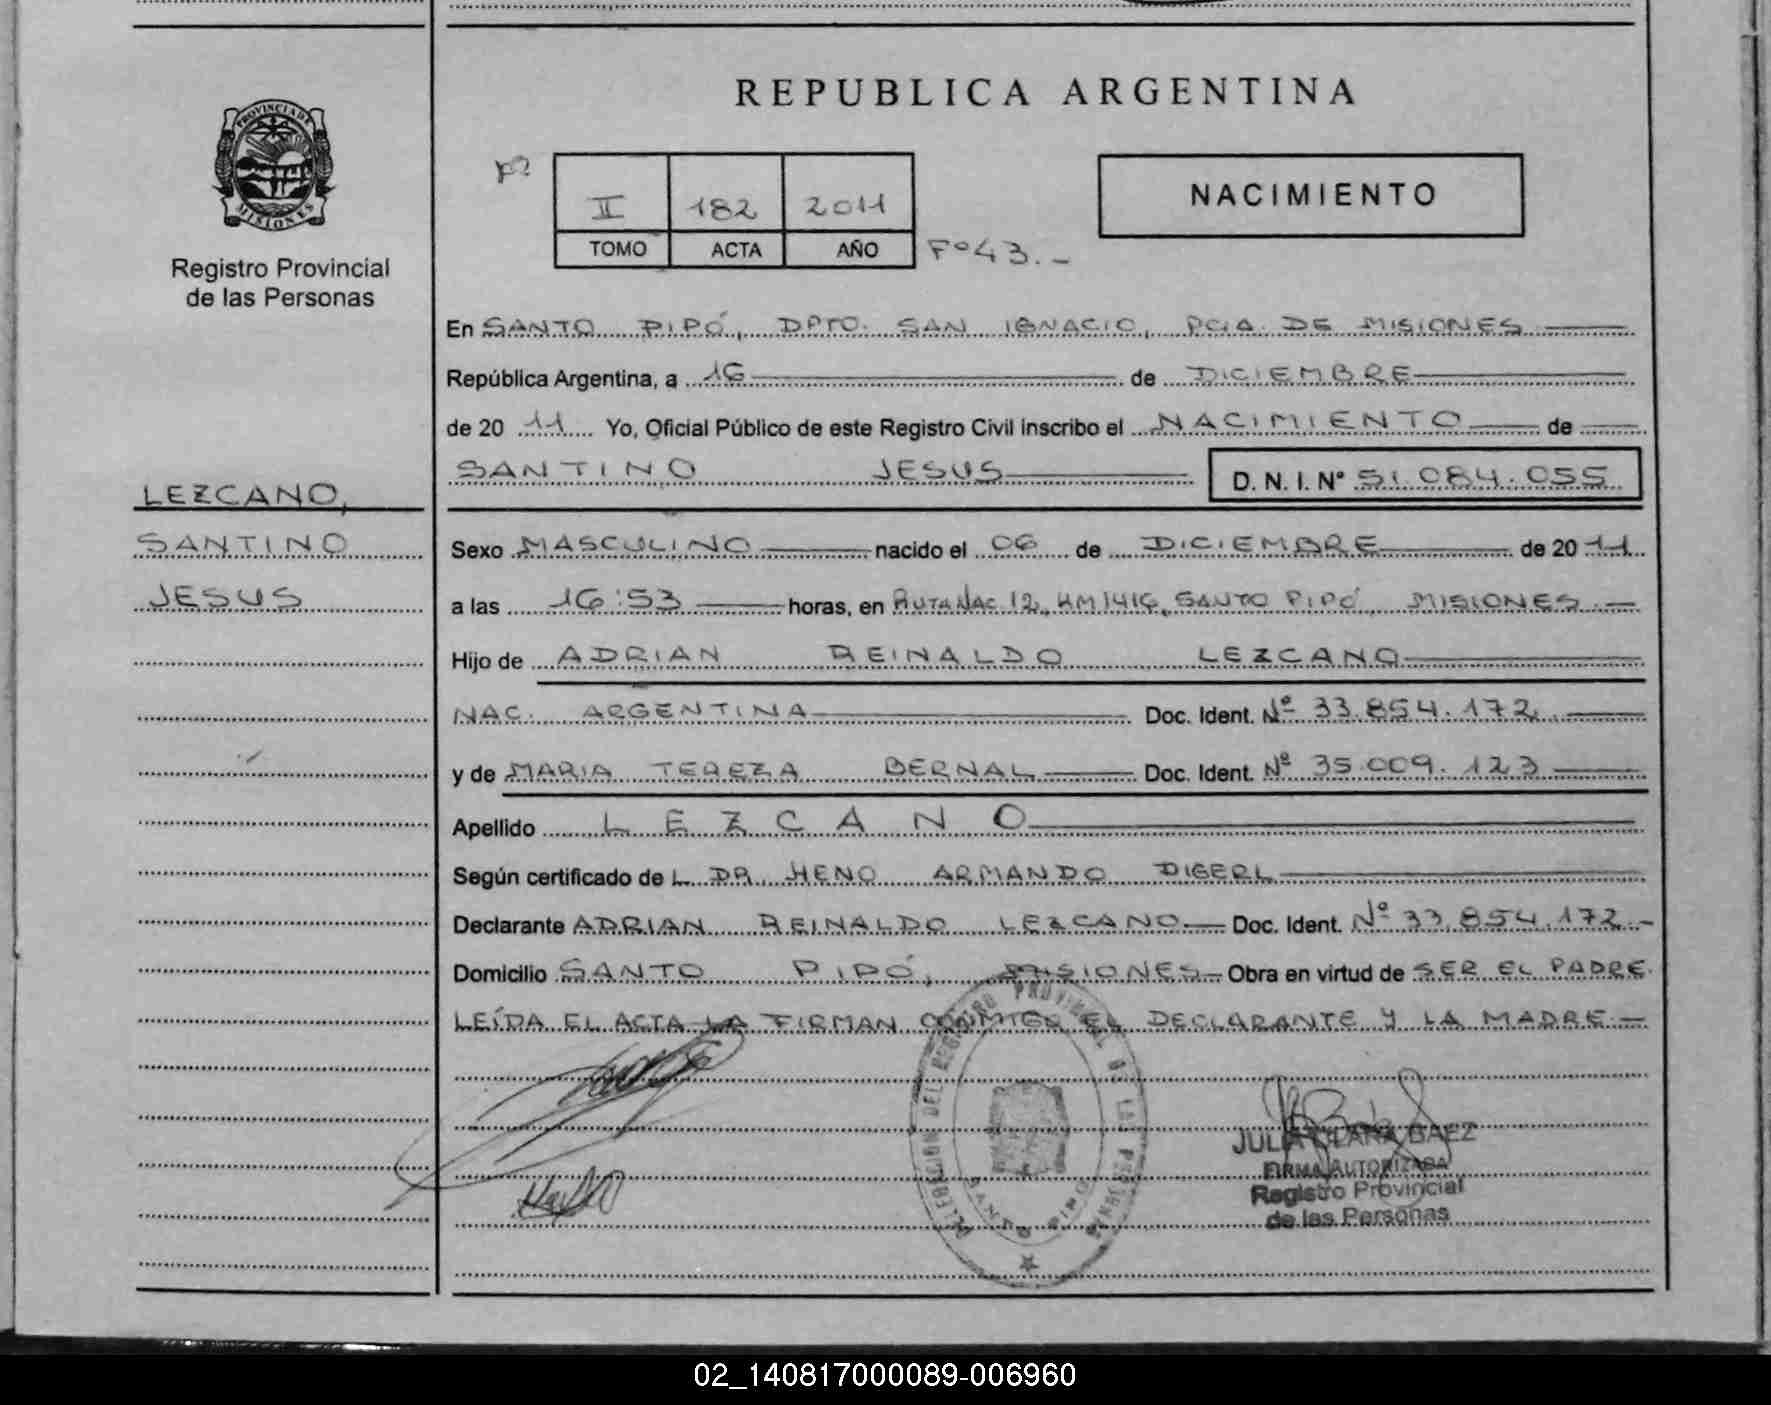 REPUBLICA ARGENTINA
PROVINCIA DE
MISIONES
Registro Provincial
de las Personas
II 182 2011
TOMO ACTA AÑO
Fº 43.-
NACIMIENTO
En SANTO PIPÓ, DPTO. SAN IGNACIO, PCIA. DE MISIONES
República Argentina, a 16 de DICIEMBRE
de 20 11 Yo, Oficial Público de este Registro Civil inscribo el NACIMIENTO de
SANTINO JESUS D. N. I. Nº 51.084.055
LEZCANO,
SANTINO
JESUS
Sexo MASCULINO nacido el 06 de DICIEMBRE de 20 11
a las 16:53 horas, en RUTA NAC. 12, KM 1416, SANTO PIPÓ, MISIONES.-
Hijo de ADRIAN REINALDO LEZCANO
NAC. ARGENTINA Doc. Ident. Nº 33.854.172
y de MARIA TEREZA BERNAL Doc. Ident. Nº 35.009.123
Apellido LEZCANO
Según certificado de L DR. HENO ARMANDO DIGERL
Declarante ADRIAN REINALDO LEZCANO Doc. Ident. Nº 33.854.172.-
Domicilio SANTO PIPÓ, MISIONES Obra en virtud de SER EL PADRE.
LEÍDA EL ACTA LA FIRMAN CONMIGO EL DECLARANTE Y LA MADRE.-
DELEGACION DEL REGISTRO PROVINCIAL DE LAS PERSONAS
SANTO PIPO
BAEZ
FIRMA AUTORIZADA
Registro Provincial
de las Personas
02_140817000089-006960